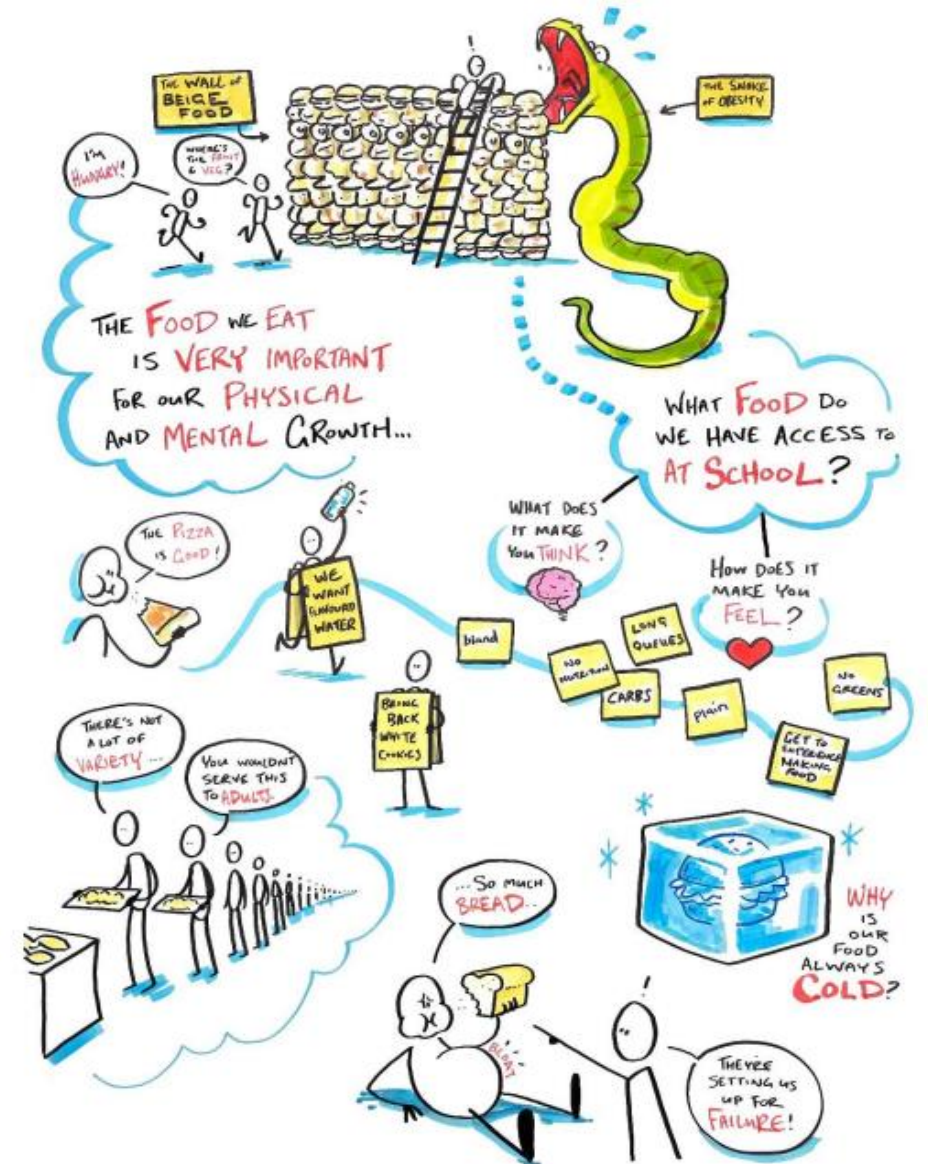 THE WALL OF
BEIGE
FOOD
THE SNAKE
OF OBESITY
I'M
HUNGRY!
WHERE'S
THE FRUIT
& VEG?
!
THE FOOD WE EAT
IS VERY IMPORTANT
FOR OUR PHYSICAL
AND MENTAL GROWTH...
WHAT FOOD DO
WE HAVE ACCESS TO
AT SCHOOL?
WHAT DOES
IT MAKE
YOU THINK?
HOW DOES IT
MAKE YOU
FEEL?
THE PIZZA
IS GOOD!
WE
WANT
FLAVOURED
WATER
bland
NO
NUTRITION
LONG
QUEUES
CARBS
Plain
NO
GREENS
GET TO
EXPERIENCE
MAKING
FOOD
BRING
BACK
WHITE
COOKIES
THERE'S NOT
A LOT OF
VARIETY...
YOU WOULDN'T
SERVE THIS
TO ADULTS
...SO MUCH
BREAD...
BLOAT
WHY
IS
OUR
FOOD
ALWAYS
COLD?
!
THEY'RE
SETTING US
UP FOR
FAILURE!